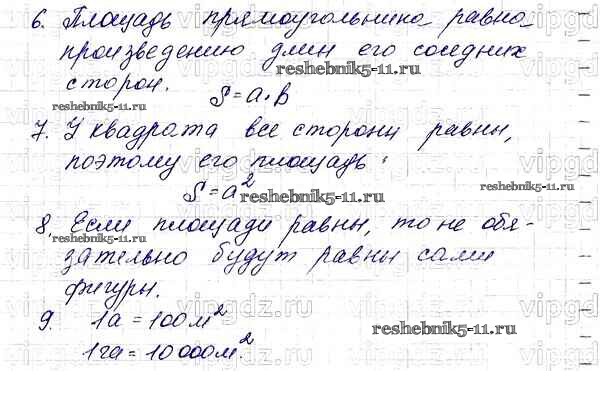 6. Площадь прямоугольника равна
произведению длин его соседних
сторон.
reshebnik5-11.ru
reshebnik5-11.ru
S = a · b
7. У квадрата все стороны равны,
поэтому его площадь:
S = a²
reshebnik5-11.ru
reshebnik5-11.ru
8. Если площади равны, то не обя-
reshebnik5-11.ru
зательно будут равны сами
фигуры.
9. 1а = 100 м²
reshebnik5-11.ru
1га = 10 000 м².
vipgdz.ru